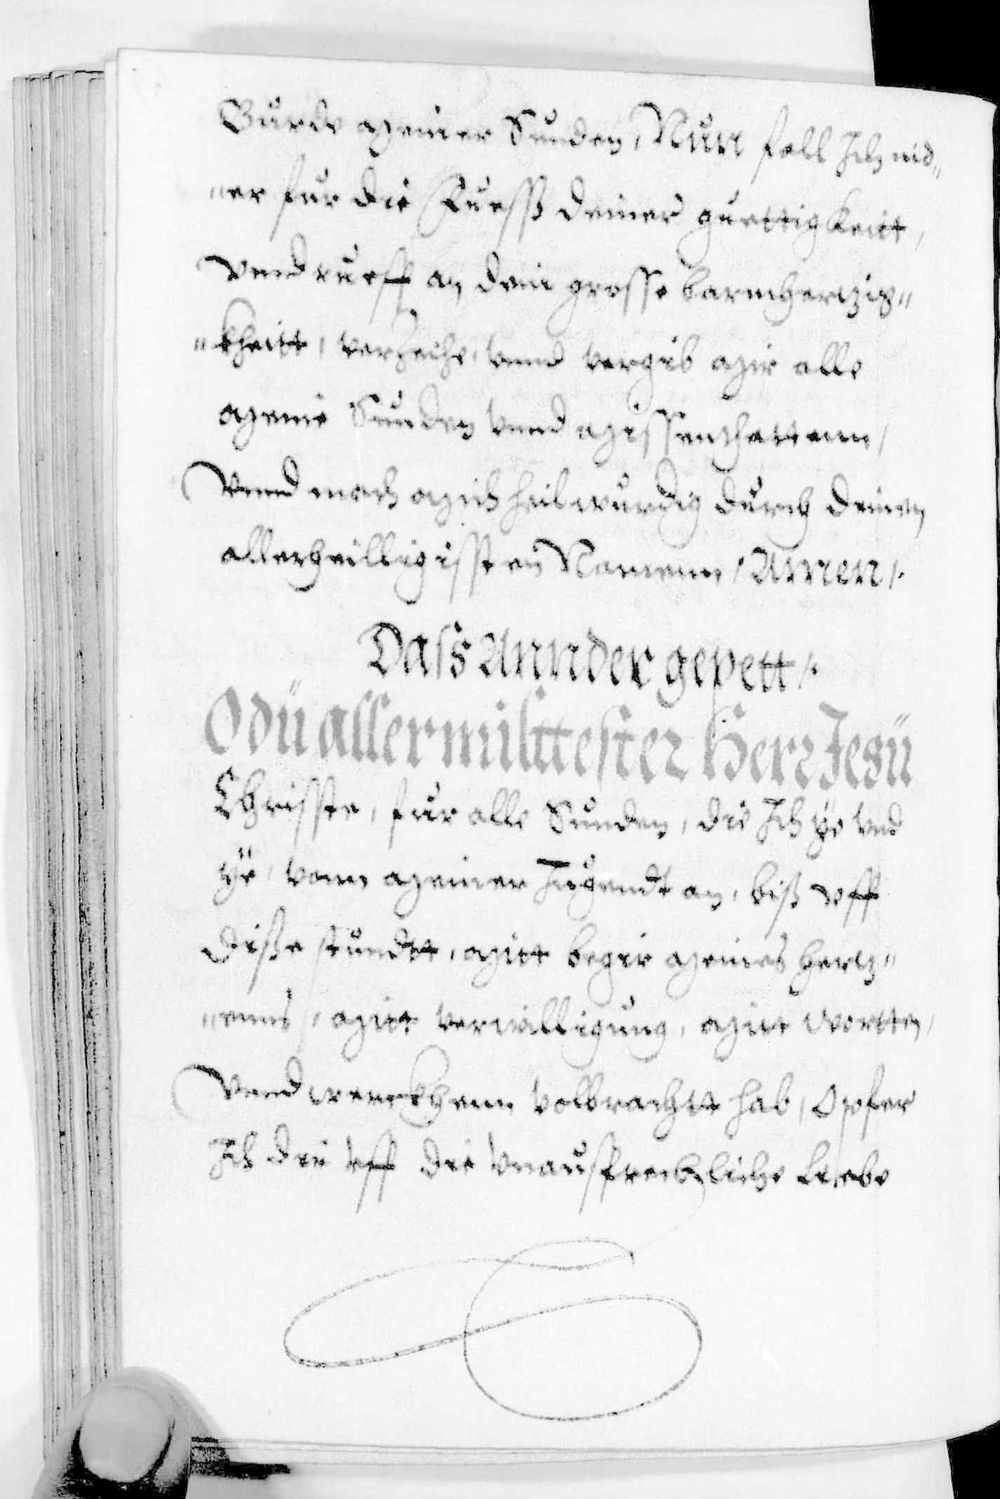 Burde meiner Sunden, Nun fall Ich nid„
„er fur die Fuesß deiner guettigkeitt,
vnnd rueff an dein grosse barmhertzig„
„kheitt, verzeihe, vnnd vergib mir alle
meine Sunden vnnd missenthattenn,
Vnnd mach mich heilwurdig durch deinen
allerheilligissten Namenn, Amen,.
Dass Annder gepett,.
O dü allermilttester Herr Jesü
Christe, fur alle Sunden, die Ich ÿe vnd
ÿe, vonn meiner Jugendt an, biß vff
diße stundtt, mitt begir meines hertz„
„enns, mitt verwilligung, mitt wortten,
Vnnd werckhenn volbrachtt hab, Opfer
Ich dir vff die vnaussprechliche Liebe